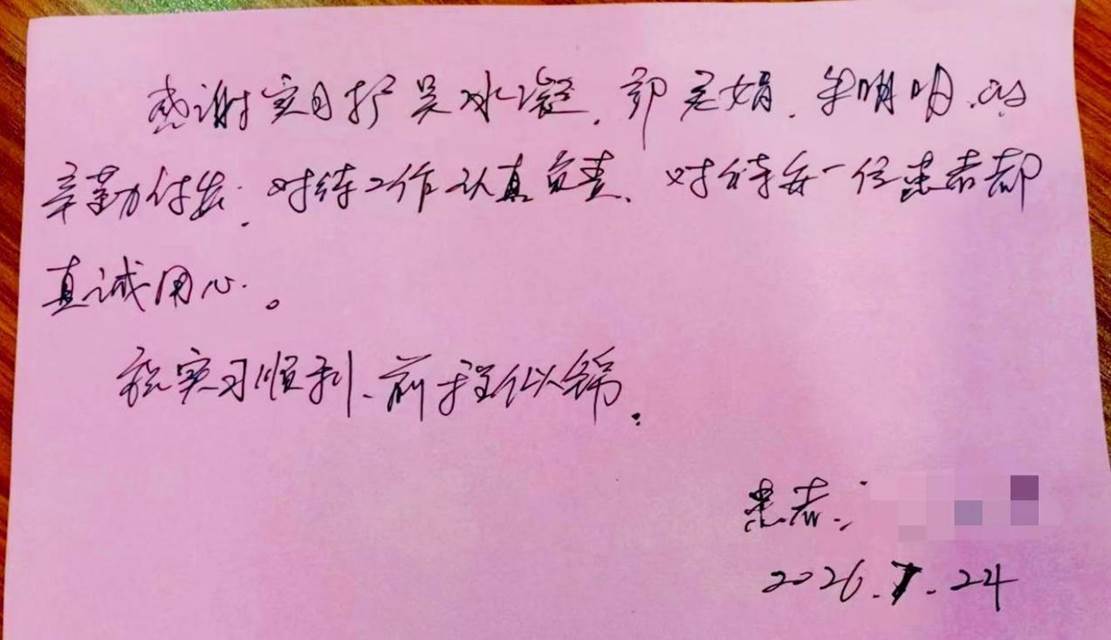 感谢实习护吴冰凝，郭君娟，朱明明的
辛勤付出，对待工作认真负责，对待每一位患者都
真诚用心。
祝实习顺利、前程似锦。
患者：
2026.1.24